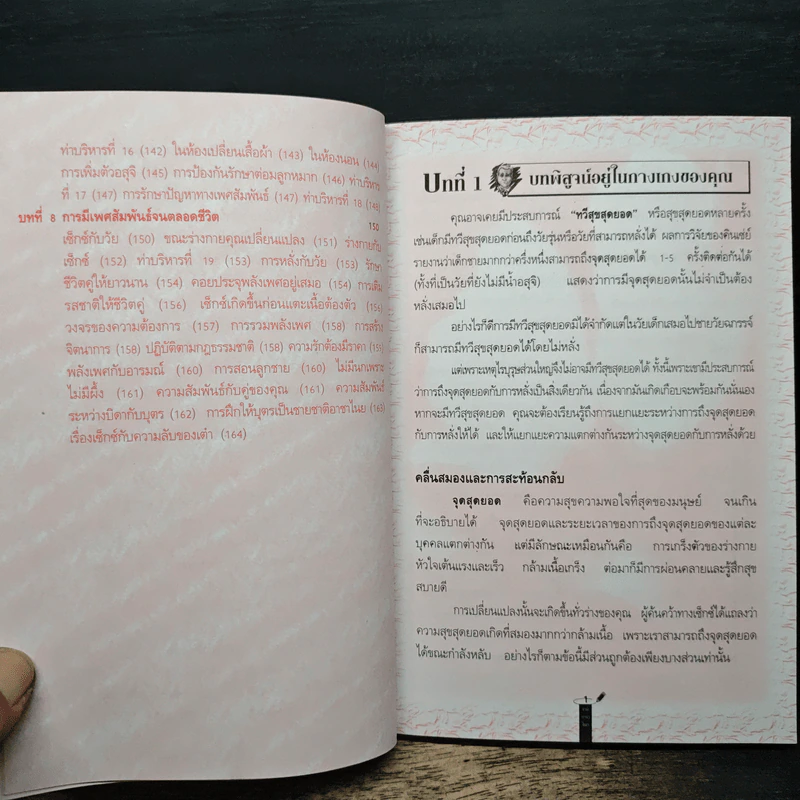 ท่าบริหารที่ 16 (142) ในห้องเปลี่ยนเสื้อผ้า (143) ในห้องนอน (144)
การเพิ่มตัวอสุจิ (145) การป้องกันรักษาต่อมลูกหมาก (146) ท่าบริหาร
ที่ 17 (147) การรักษาปัญหาทางเพศสัมพันธ์ (147) ท่าบริหารที่ 18 (148)
บทที่ 8 การมีเพศสัมพันธ์จนตลอดชีวิต 150
เซ็กซ์กับวัย (150) ขณะร่างกายคุณเปลี่ยนแปลง (151) ร่างกายกับ
เซ็กซ์ (152) ท่าบริหารที่ 19 (153) การหลั่งกับวัย (153) รักษา
ชีวิตคู่ให้ยาวนาน (154) คอยประจุพลังเพศอยู่เสมอ (154) การเติม
รสชาติให้ชีวิตคู่ (156) เซ็กซ์เกิดขึ้นก่อนแตะเนื้อต้องตัว (156)
วงจรของความต้องการ (157) การรวมพลังเพศ (158) การสร้าง
จิตนาการ (158) ปฏิบัติตามกฎธรรมชาติ (158) ความรักต้องมีราคา (159)
พลังเพศกับอารมณ์ (160) การสอนลูกชาย (160) ไม่มีนกเพราะ
ไม่มีผึ้ง (161) ความสัมพันธ์กับคู่ของคุณ (161) ความสัมพันธ์
ระหว่างบิดากับบุตร (162) การฝึกให้บุตรเป็นชายชาติอาชาไนย (163)
เรื่องเซ็กซ์กับความลับของเต๋า (164)
บทที่ 1 บทพิสูจน์อยู่ในกางเกงของคุณ
คุณอาจเคยมีประสบการณ์ “ทวีสุขสุดยอด” หรือสุขสุดยอดหลายครั้ง
เช่นเด็กมีทวีสุขสุดยอดก่อนถึงวัยรุ่นหรือวัยที่สามารถหลั่งได้ ผลการวิจัยของคินเซย์
รายงานว่าเด็กชายมากกว่าครึ่งหนึ่งสามารถถึงจุดสุดยอดได้ 1-5 ครั้งติดต่อกันได้
(ทั้งที่เป็นวัยที่ยังไม่มีน้ำอสุจิ) แสดงว่าการมีจุดสุดยอดนั้นไม่จำเป็นต้อง
หลั่งเสมอไป
อย่างไรก็ดีการมีทวีสุขสุดยอดมิได้จำกัดแต่ในวัยเด็กเสมอไปชายวัยฉกรรจ์
ก็สามารถมีทวีสุขสุดยอดได้โดยไม่หลั่ง
แต่เพราะเหตุไรบุรุษส่วนใหญ่จึงไม่อาจมีทวีสุขสุดยอดได้ ทั้งนี้เพราะเขามีประสบการณ์
ว่าการถึงจุดสุดยอดกับการหลั่งเป็นสิ่งเดียวกัน เนื่องจากมันเกิดเกือบจะพร้อมกันนั่นเอง
หากจะมีทวีสุขสุดยอด คุณจะต้องเรียนรู้ถึงการแยกแยะระหว่างการถึงจุดสุดยอด
กับการหลั่งให้ได้ และให้แยกแยะความแตกต่างกันระหว่างจุดสุดยอดกับการหลั่งด้วย
คลื่นสมองและการสะท้อนกลับ
จุดสุดยอด คือความสุขความพอใจที่สุดของมนุษย์ จนเกิน
ที่จะอธิบายได้ จุดสุดยอดและระยะเวลาของการถึงจุดสุดยอดของแต่ละ
บุคคลแตกต่างกัน แต่มีลักษณะเหมือนกันคือ การเกร็งตัวของร่างกาย
หัวใจเต้นแรงและเร็ว กล้ามเนื้อเกร็ง ต่อมาก็มีการผ่อนคลายและรู้สึกสุข
สบายดี
การเปลี่ยนแปลงนั้นจะเกิดขึ้นทั่วร่างของคุณ ผู้ค้นคว้าทางเซ็กซ์ได้แถลงว่า
ความสุขสุดยอดเกิดที่สมองมากกว่ากล้ามเนื้อ เพราะเราสามารถถึงจุดสุดยอด
ได้ขณะกำลังหลับ อย่างไรก็ตามข้อนี้มีส่วนถูกต้องเพียงบางส่วนเท่านั้น
1